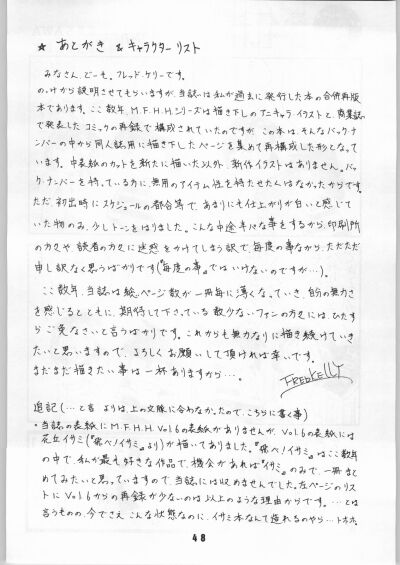 ★ あとがき & キャラクターリスト
みなさん、どーも。フレッド・ケリーです。
のっけから説明させてもらいますが、当誌は私が過去に発行した本の合併再版
本であります。ここ数年、M.F.H.H.シリーズは描き下しのアニキャライラストと、商業誌
で発表したコミックの再録で構成されていたのですが、この本は、そんなバックナ
ンバーの中から同人誌用に描き下したページを集めて再構成した形となって
います。中表紙のカットを新たに描いた以外、新作イラストはありません。バッ
クナンバーを持っている方に、無用のアイテム性を持たせたくはなかったからです。
ただ、初出時にスケジュールの都合等で、あまりにも仕上がりが白いと感じて
いた物のみ、少しトーンをはりました。こんな中途半パな事をするから、印刷所
の方々や読者の方々に迷惑をかけてしまう訳で、毎度の事ながら、ただただ
申し訳なく思うばかりです(『毎度の事』ではいけないのですが…)。
ここ数年、当誌は絵、ページ数が一冊毎に薄くなっていき、自分の無力さ
を感じるとともに、期待して下さっている数少ないファンの方々には、ひたす
らご免なさいと言うばかりです。これからも無力なりに描き続けていき
たいと思いますので、よろしくお願いして頂ければ幸いです。
まだまだ描きたい事は一杯ありますから…。
FREDKELLY
追記(…と言うよりは、上の文脈に合わなかったので、こちらに書く事)
・当誌の表紙にM.F.H.H. Vol.6の表紙がありませんが、Vol.6の表紙には
花丘イサミ(『飛べ!イサミ』より)が描いてありました。『飛べ!イサミ』はここ数年
の中で、私が最も好きな作品で、機会があれば『イサミ』のみで、一冊まと
めてみたいと思っていますので、当誌には収めませんでした。左ページのリス
トにVol.6からの再録が少ないのは以上のような理由からです。…とは
言うものの、今でさえこんな状態なのに、イサミ本なんて造れるのやら…トホホ。
48